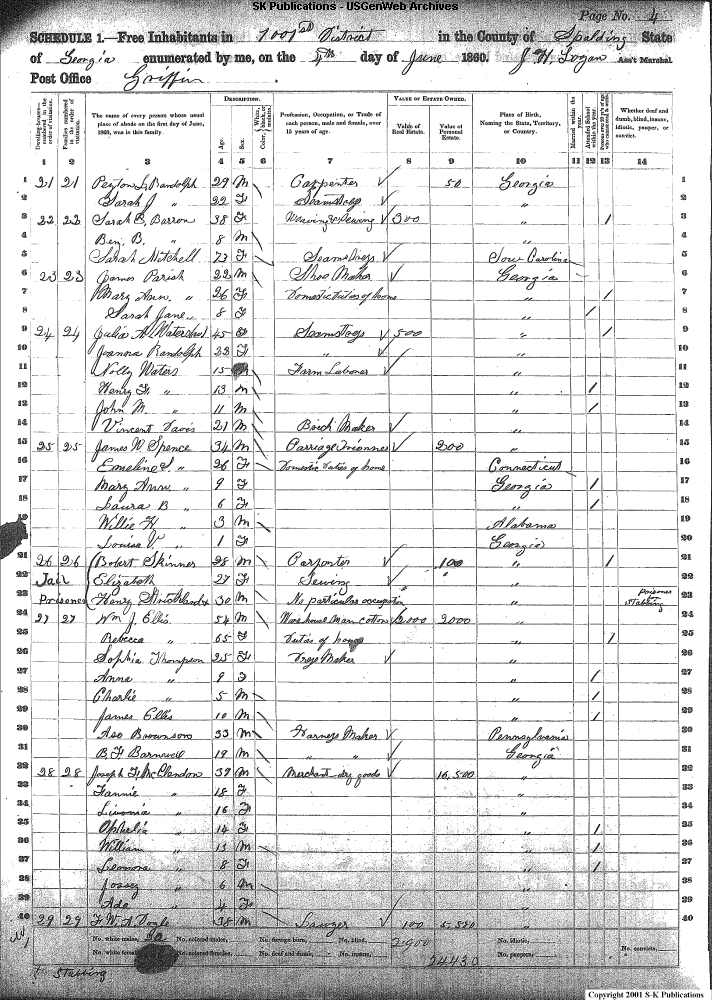 SK Publications - USGenWeb Archives
Page No. 4
SCHEDULE 1.—Free Inhabitants in 1001st District in the County of Spalding State
of Georgia enumerated by me, on the 4th day of June 1860. J. H. Logan Ass't Marshal.
Post Office Griffin
Dwelling-houses— numbered in the order of visitation.
Families numbered in the order of visitation.
The name of every person whose usual place of abode on the first day of June, 1860, was in this family.
DESCRIPTION.
Age.
Sex.
White, Color, black, or mulatto.
Profession, Occupation, or Trade of each person, male and female, over 15 years of age.
VALUE OF ESTATE OWNED.
Value of Real Estate.
Value of Personal Estate.
Place of Birth, Naming the State, Territory, or Country.
Married within the year.
Attended School within the year.
Whether deaf and dumb, blind, insane, idiotic, pauper, or convict.
1 2 3 4 5 6 7 8 9 10 11 12 13 14
1 21 21 Peyton L. Randolph 29 M Carpenter 50 Georgia 1
2 Sarah J " 22 F Seamstress " 2
3 22 22 Sarah E. Barron 38 F Weaving & Sewing 300 " / 3
4 Ben. B. " 8 M " 4
5 Sarah Mitchell 73 F Seamstress Sow Carolina 5
6 23 23 James Parish 22 M Shoe Maker Georgia 6
7 Mary Ann " 26 F Domestic duties of home " / 7
8 Sarah Jane " 8 F " / 8
9 24 24 Julia A. 45 F Seamstress 500 " / 9
10 Randolph 22 F " " 10
11 Nolly Waters 15 Farm Laborer " 11
12 Henry F. " 13 M " / 12
13 John M. " 11 M " / 13
14 Vincent Davis 21 M Maker " 14
15 25 25 James W Spence 34 M Carriage Trimmer 200 " 15
16 Emeline S. " 26 F Domestic duties of home Connecticut 16
17 Mary Ann " 9 F Georgia / 17
18 Laura B " 6 F " / 18
19 Willie H " 3 M Alabama 19
20 Louisa V. " 1 F Georgia 20
21 26 26 Robert Skinner 28 M Carpenter 100 " / 21
22 Jail Elizabeth 27 F Sewing " " 22
23 Prisoner Henry Strickland 30 M No particular occupation " prisoner stabbing 23
24 27 27 Wm J. Ellis 54 M Warehouse Man cotton 2,000 2000 " 24
25 Rebecca " 65 F Duties of house " / 25
26 Sophia Thompson 25 F Dress Maker " 26
27 Anna " 9 F " / 27
28 Charlie " 5 M " / 28
29 James Ellis 10 M " / 29
30 Brownson 33 M Harness Maker Pennsylvania 30
31 B. F. Barnwell 19 M " " Georgia 31
32 28 28 Joseph F. McClendon 39 M Merchant dry goods 16,500 " 32
33 Fannie " 18 F " 33
34 Livonia " 16 F " 34
35 Ophelia " 14 F " / 35
36 William " 13 M " / 36
37 Leonora " 8 F " / 37
38 " 6 M " 38
39 Ada " 4 F " 39
40 29 29 F. W. A. Doyle 38 M Lawyer 100 40
No. white males, No. colored males, No. foreign born, No. blind, 2900 No. idiotic, No. convicts,
No. white females, No. colored females, No. deaf and dumb, No. insane, 24430 No. paupers,
Stabbing
Copyright 2001 S-K Publications